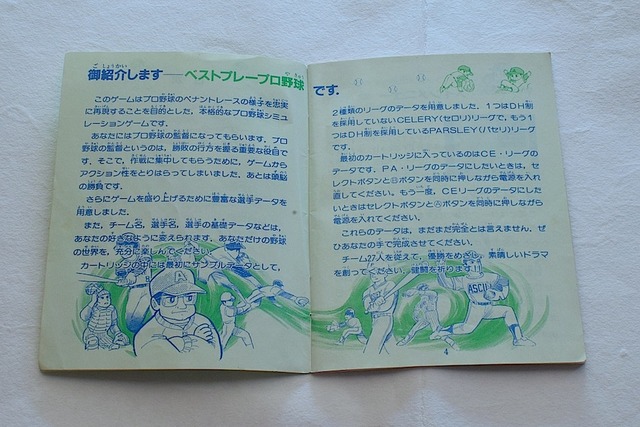 御紹介します――ベストプレープロ野球
です.
このゲームはプロ野球のペナントレースの様子を忠実
に再現することを目的とした，本格的なプロ野球シミュ
レーションゲームです.
あなたにはプロ野球の監督になってもらいます. プロ
野球の監督というのは，勝敗の行方を握る重要な役目で
す. そこで，作戦に集中してもらうために，ゲームから
アクション性をとりはらってしまいました. あとは頭脳
の勝負です.
さらにゲームを盛り上げるために豊富な選手データを
用意しました.
また，チーム名，選手名，選手の基礎データなどは，
あなたの好きなように変えられます. あなただけの野球
の世界を，充分に楽しんでください.
カートリッジの中には最初にサンプルデータとして，
2種類のリーグのデータを用意しました. 1つはDH制
を採用していないCELERY(セロリ)リーグで，もう1
つはDH制を採用しているPARSLEY(パセリ)リーグ
です.
最初のカートリッジに入っているのはCE・リーグの
データです. PA・リーグのデータにしたいときは，セ
レクトボタンとⒷボタンを同時に押しながら電源を入れ
直してください. もう一度，CEリーグのデータにした
いときはセレクトボタンとⒶボタンを同時に押しながら
電源を入れてください.
これらのデータは，まだまだ完全とは言えません. ぜ
ひあなたの手で完成させてください.
チーム27人を従えて，優勝をめざし，素晴しいドラマ
を創ってください. 健闘を祈ります!!
A
ASCII
4